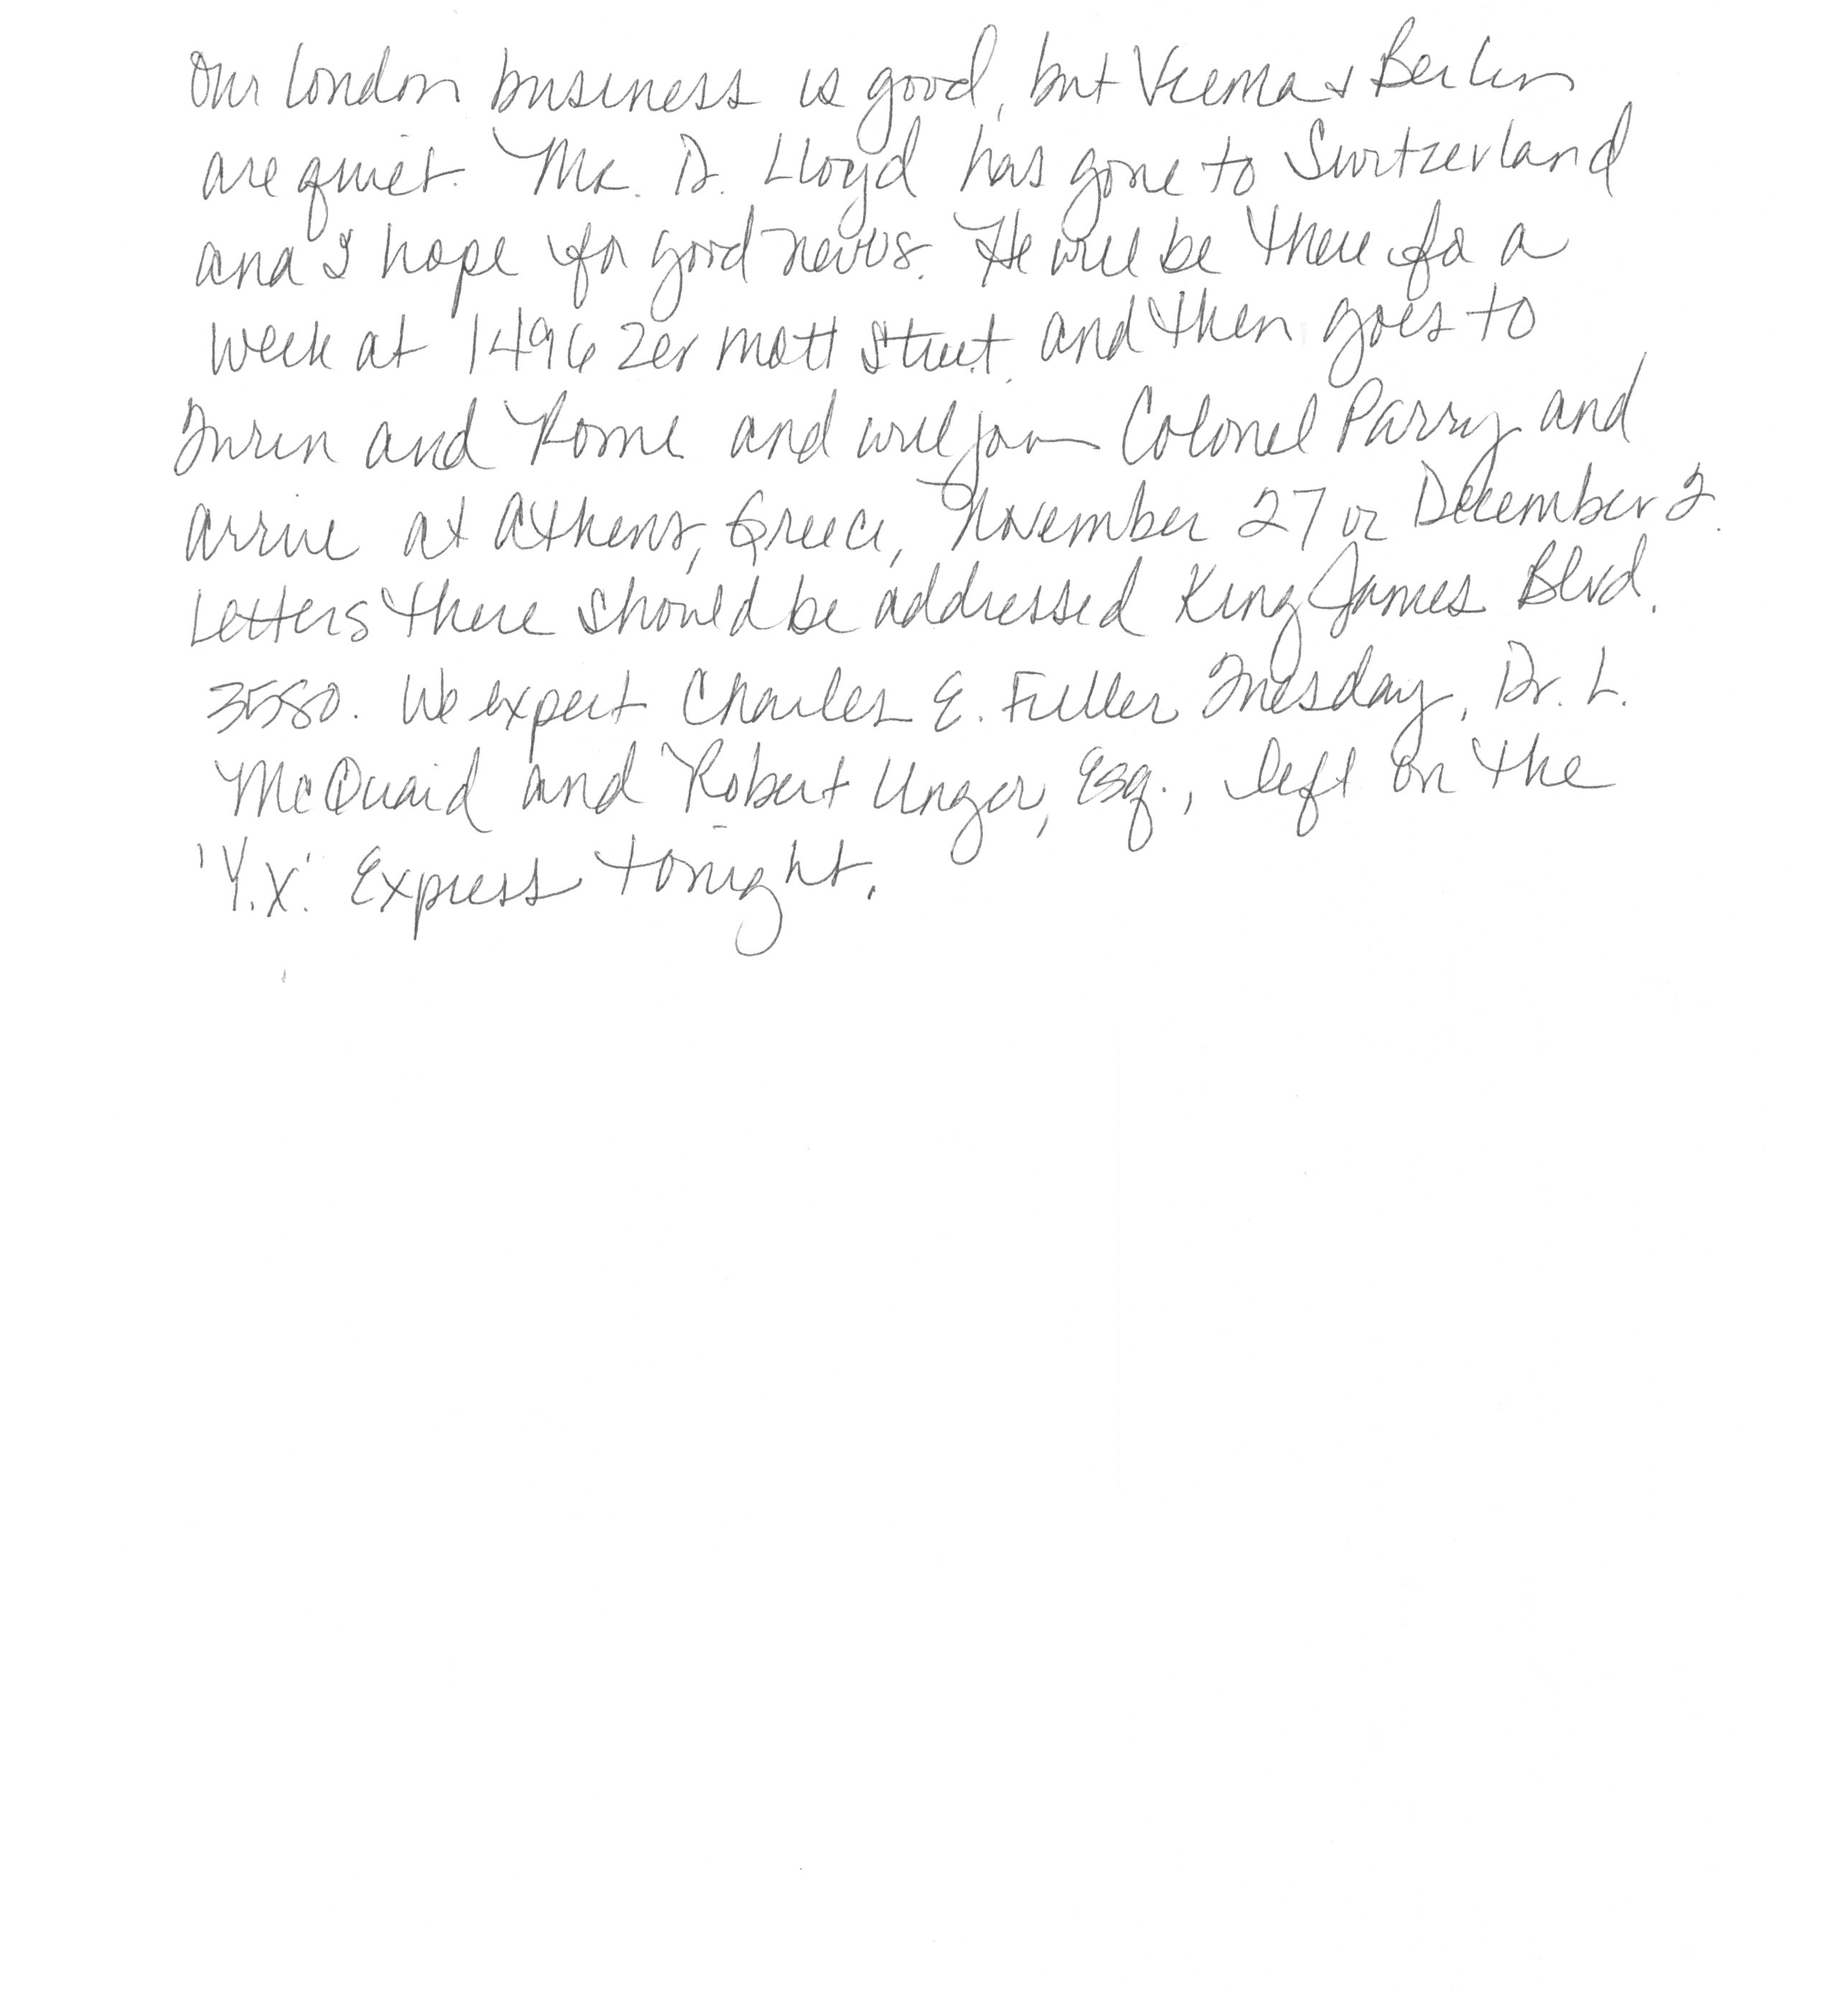 Our London business is good, but Vienna & Berlin
are quiet. Mr. D. Lloyd has gone to Switzerland
and I hope for good news. He will be there for a
week at 1496 Zermott Street and then goes to
Turin and Rome and will join Colonel Parry and
arrive at Athens, Greece, November 27 or December 2.
Letters there should be addressed King James Blvd.
3580. We expect Charles E. Fuller Tuesday, Dr. L.
McQuaid and Robert Unger, Esq., left on the
'Y.X.' Express tonight.